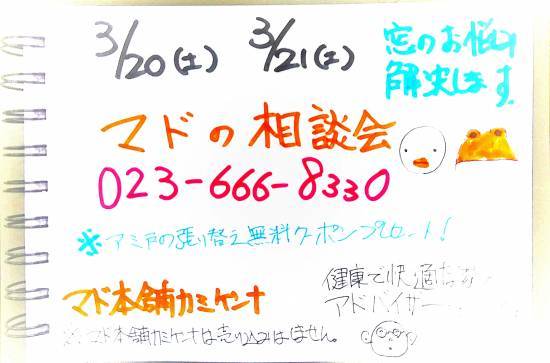 3/20(土) 3/21(土)
窓のお悩み
解決します。
マドの相談会
023-666-8330
※アミ戸の張り替え無料クーポンプレゼント!
マド本舗カミケンナ
健康で快適な
アドバイザー
※マド本舗カミケンナは売り込みはしません。